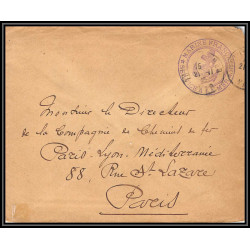 MARINE FRANÇAISE
Monsieur le Directeur
de la Compagnie de Chemins de fer
Paris-Lyon-Méditerranée
88, Rue St Lazare
Paris